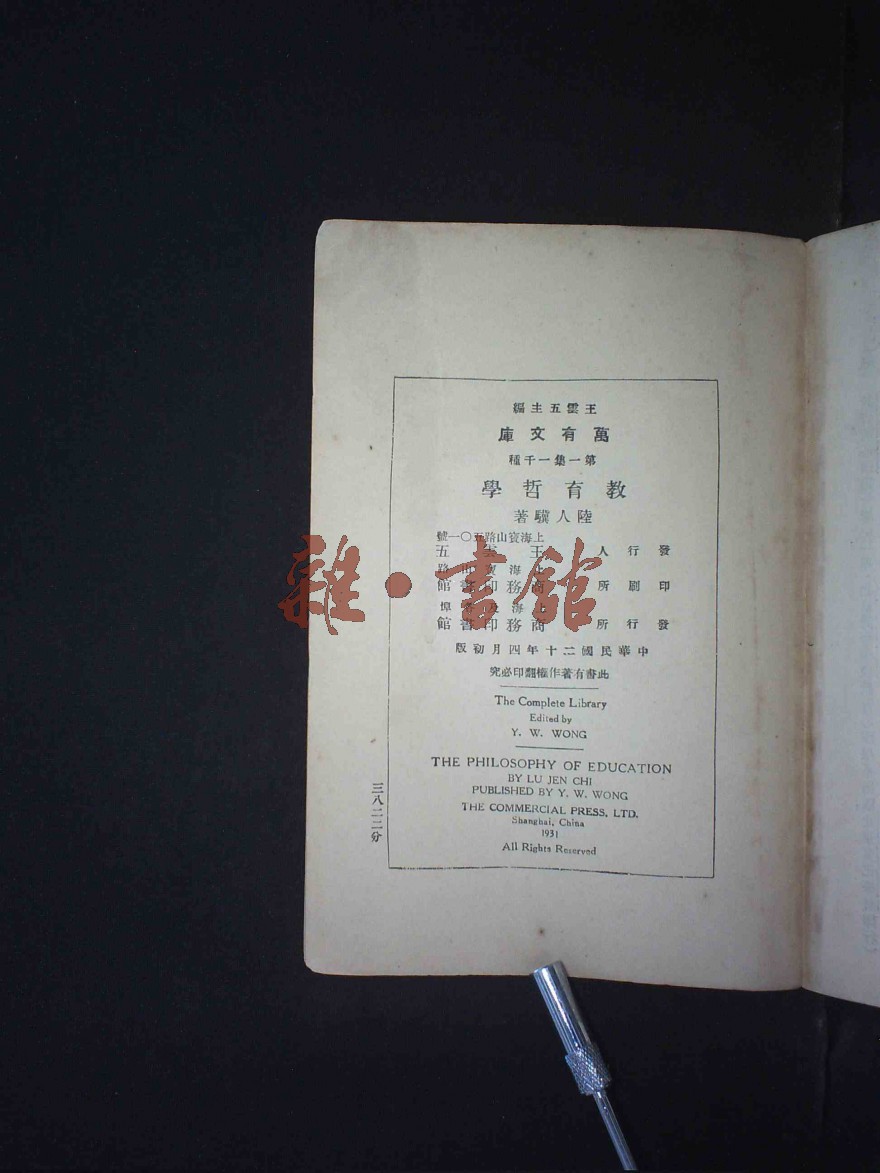 王雲五主編
萬有文庫
第一集一千種
教育哲學
陸人驥著
上海寶山路五〇一號
發行人 王雲五
上海寶山路
印刷所 商務印書館
上海及各埠
發行所 商務印書館
中華民國二十年四月初版
此書有著作權翻印必究
The Complete Library
Edited by
Y. W. WONG
THE PHILOSOPHY OF EDUCATION
BY LU JEN CHI
PUBLISHED BY Y. W. WONG
THE COMMERCIAL PRESS, LTD.
Shanghai, China
1931
All Rights Reserved
三八二二分
雜·書館